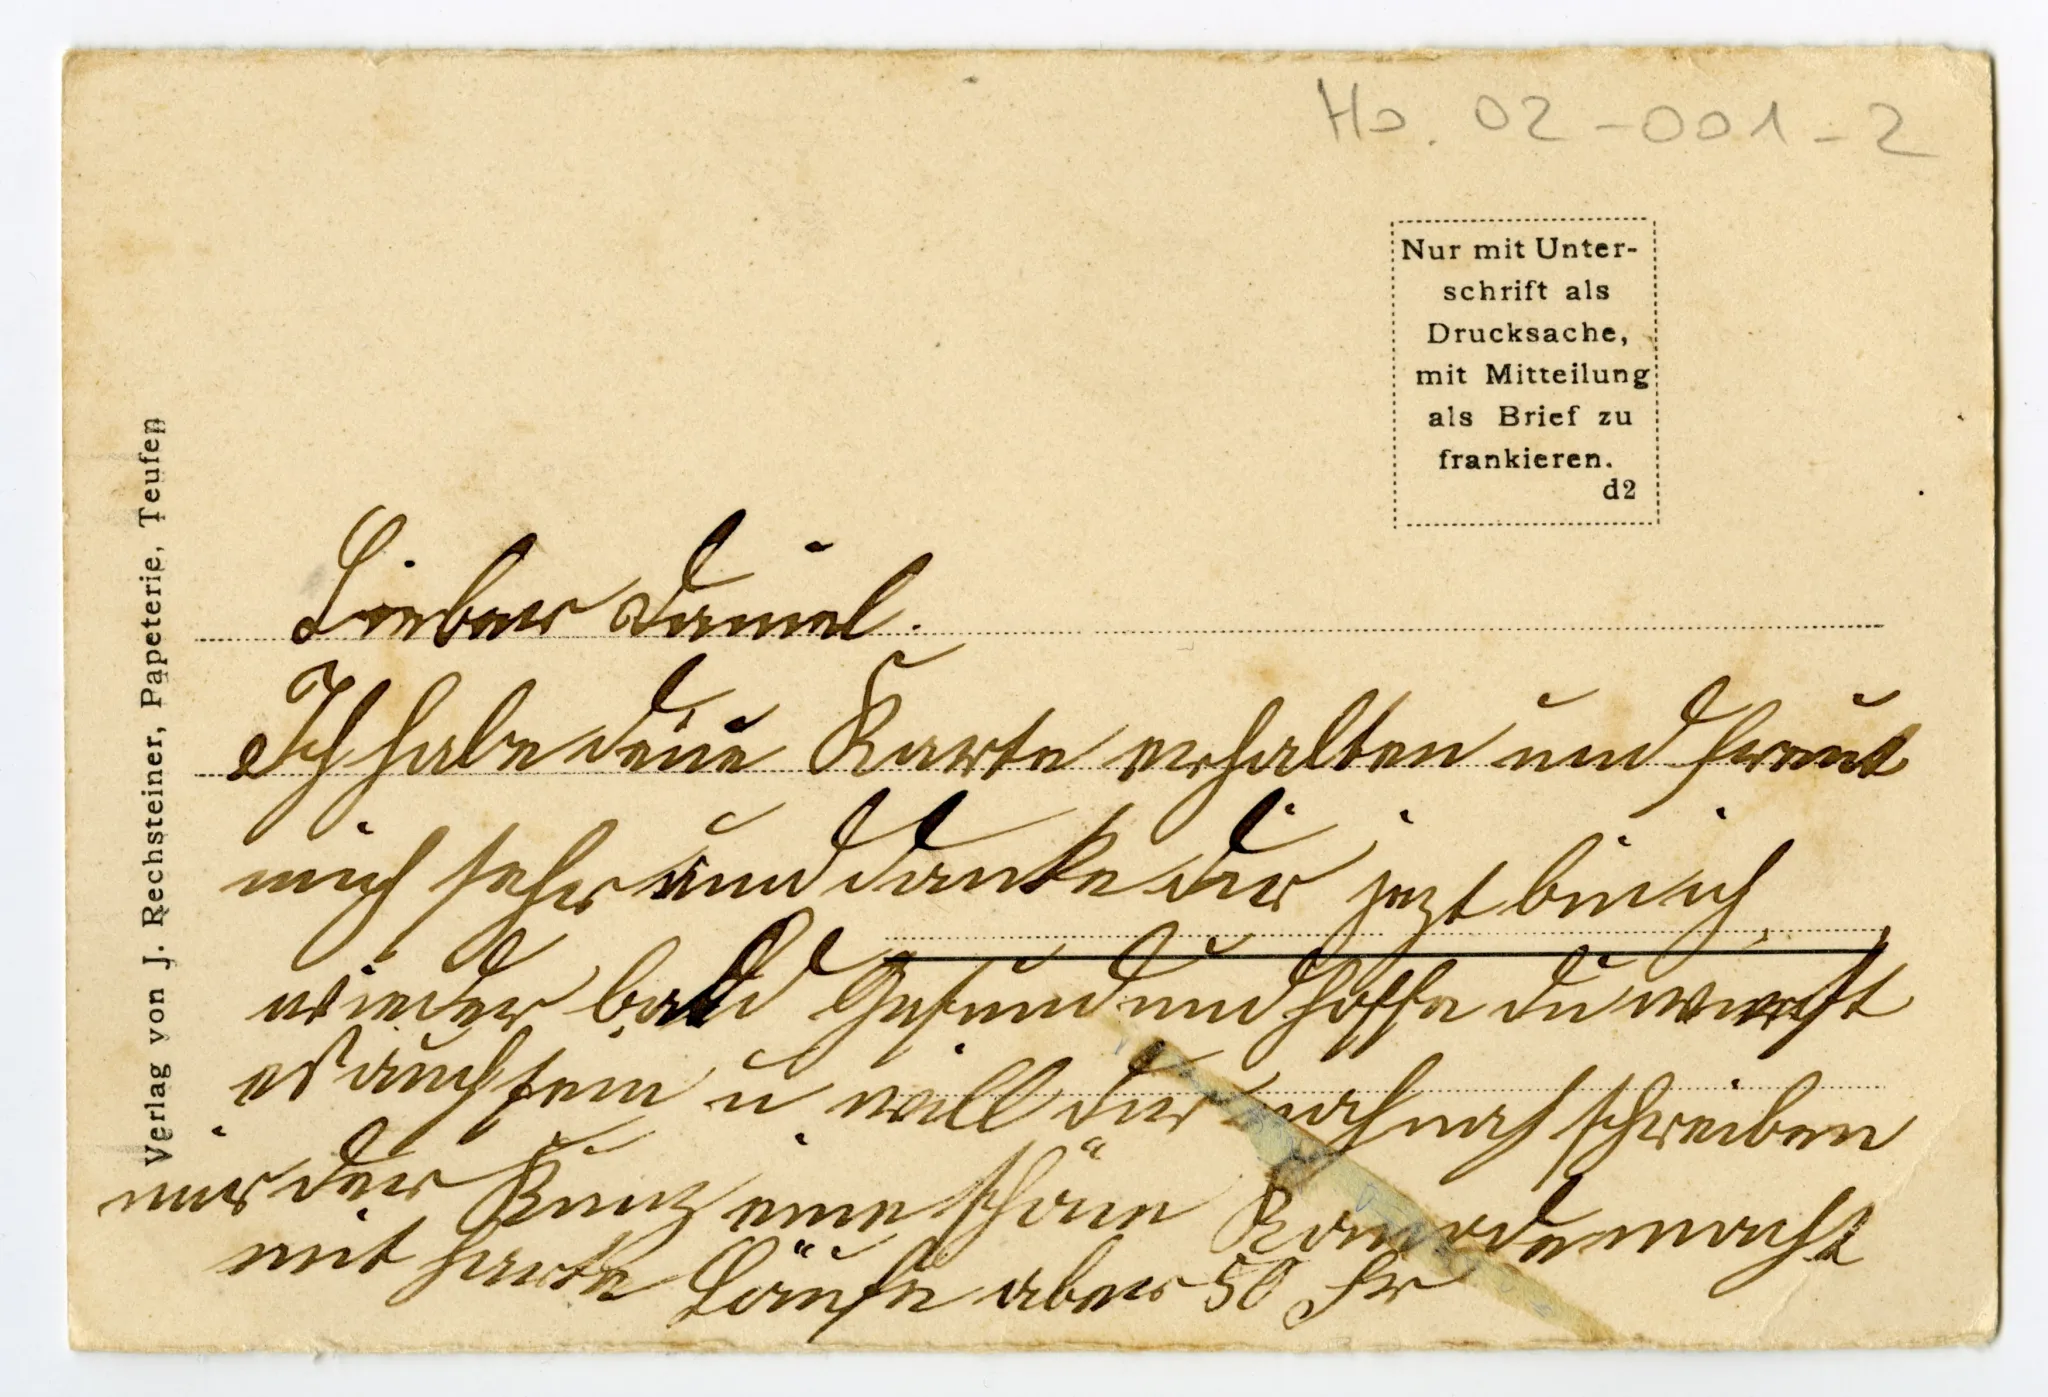 Ho. 02-001-2
Nur mit Unter-
schrift als
Drucksache,
mit Mitteilung
als Brief zu
frankieren.
d2
Verlag von J. Rechsteiner, Papeterie, Teufen
Lieber Daniel.
Ich habe deine Karte erhalten und freut
mich sehr und danke dir jezt bin ich
wieder bald Gesund und hoffe du wirst
es auch sein u will dir nah schreiben
der Kunz eine schöne macht
mit harte Läufe aber 50 Fr